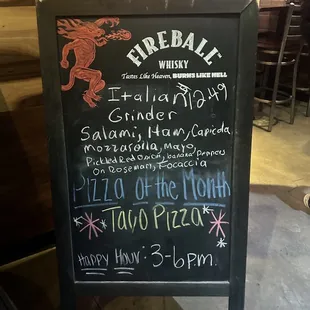 FIREBALL
WHISKY
Tastes Like Heaven, BURNS LIKE HELL
Italian $12.49
Grinder
Salami, Ham, Capicola
Mozzarolla, Mayo,
Pickled Red Onion, banana Peppers
on Rosemary Focaccia
Pizza of the Month
Taco Pizza
Happy Hour: 3-6p.m.